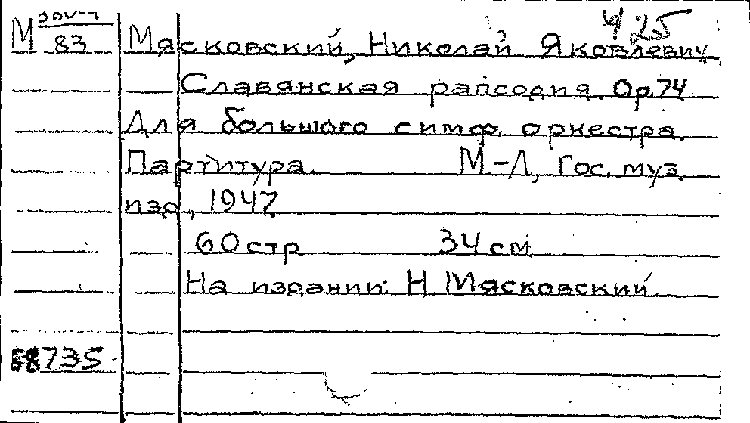 425
М 30V-7
83
Мясковский, Николай Яковлевич
Славянская рапсодия. Ор.74
Для большого симф. оркестра.
Партитура. М.-Л., Гос. муз.
изд., 1947
60 стр 34 см
На издании: Н Мясковский
58735